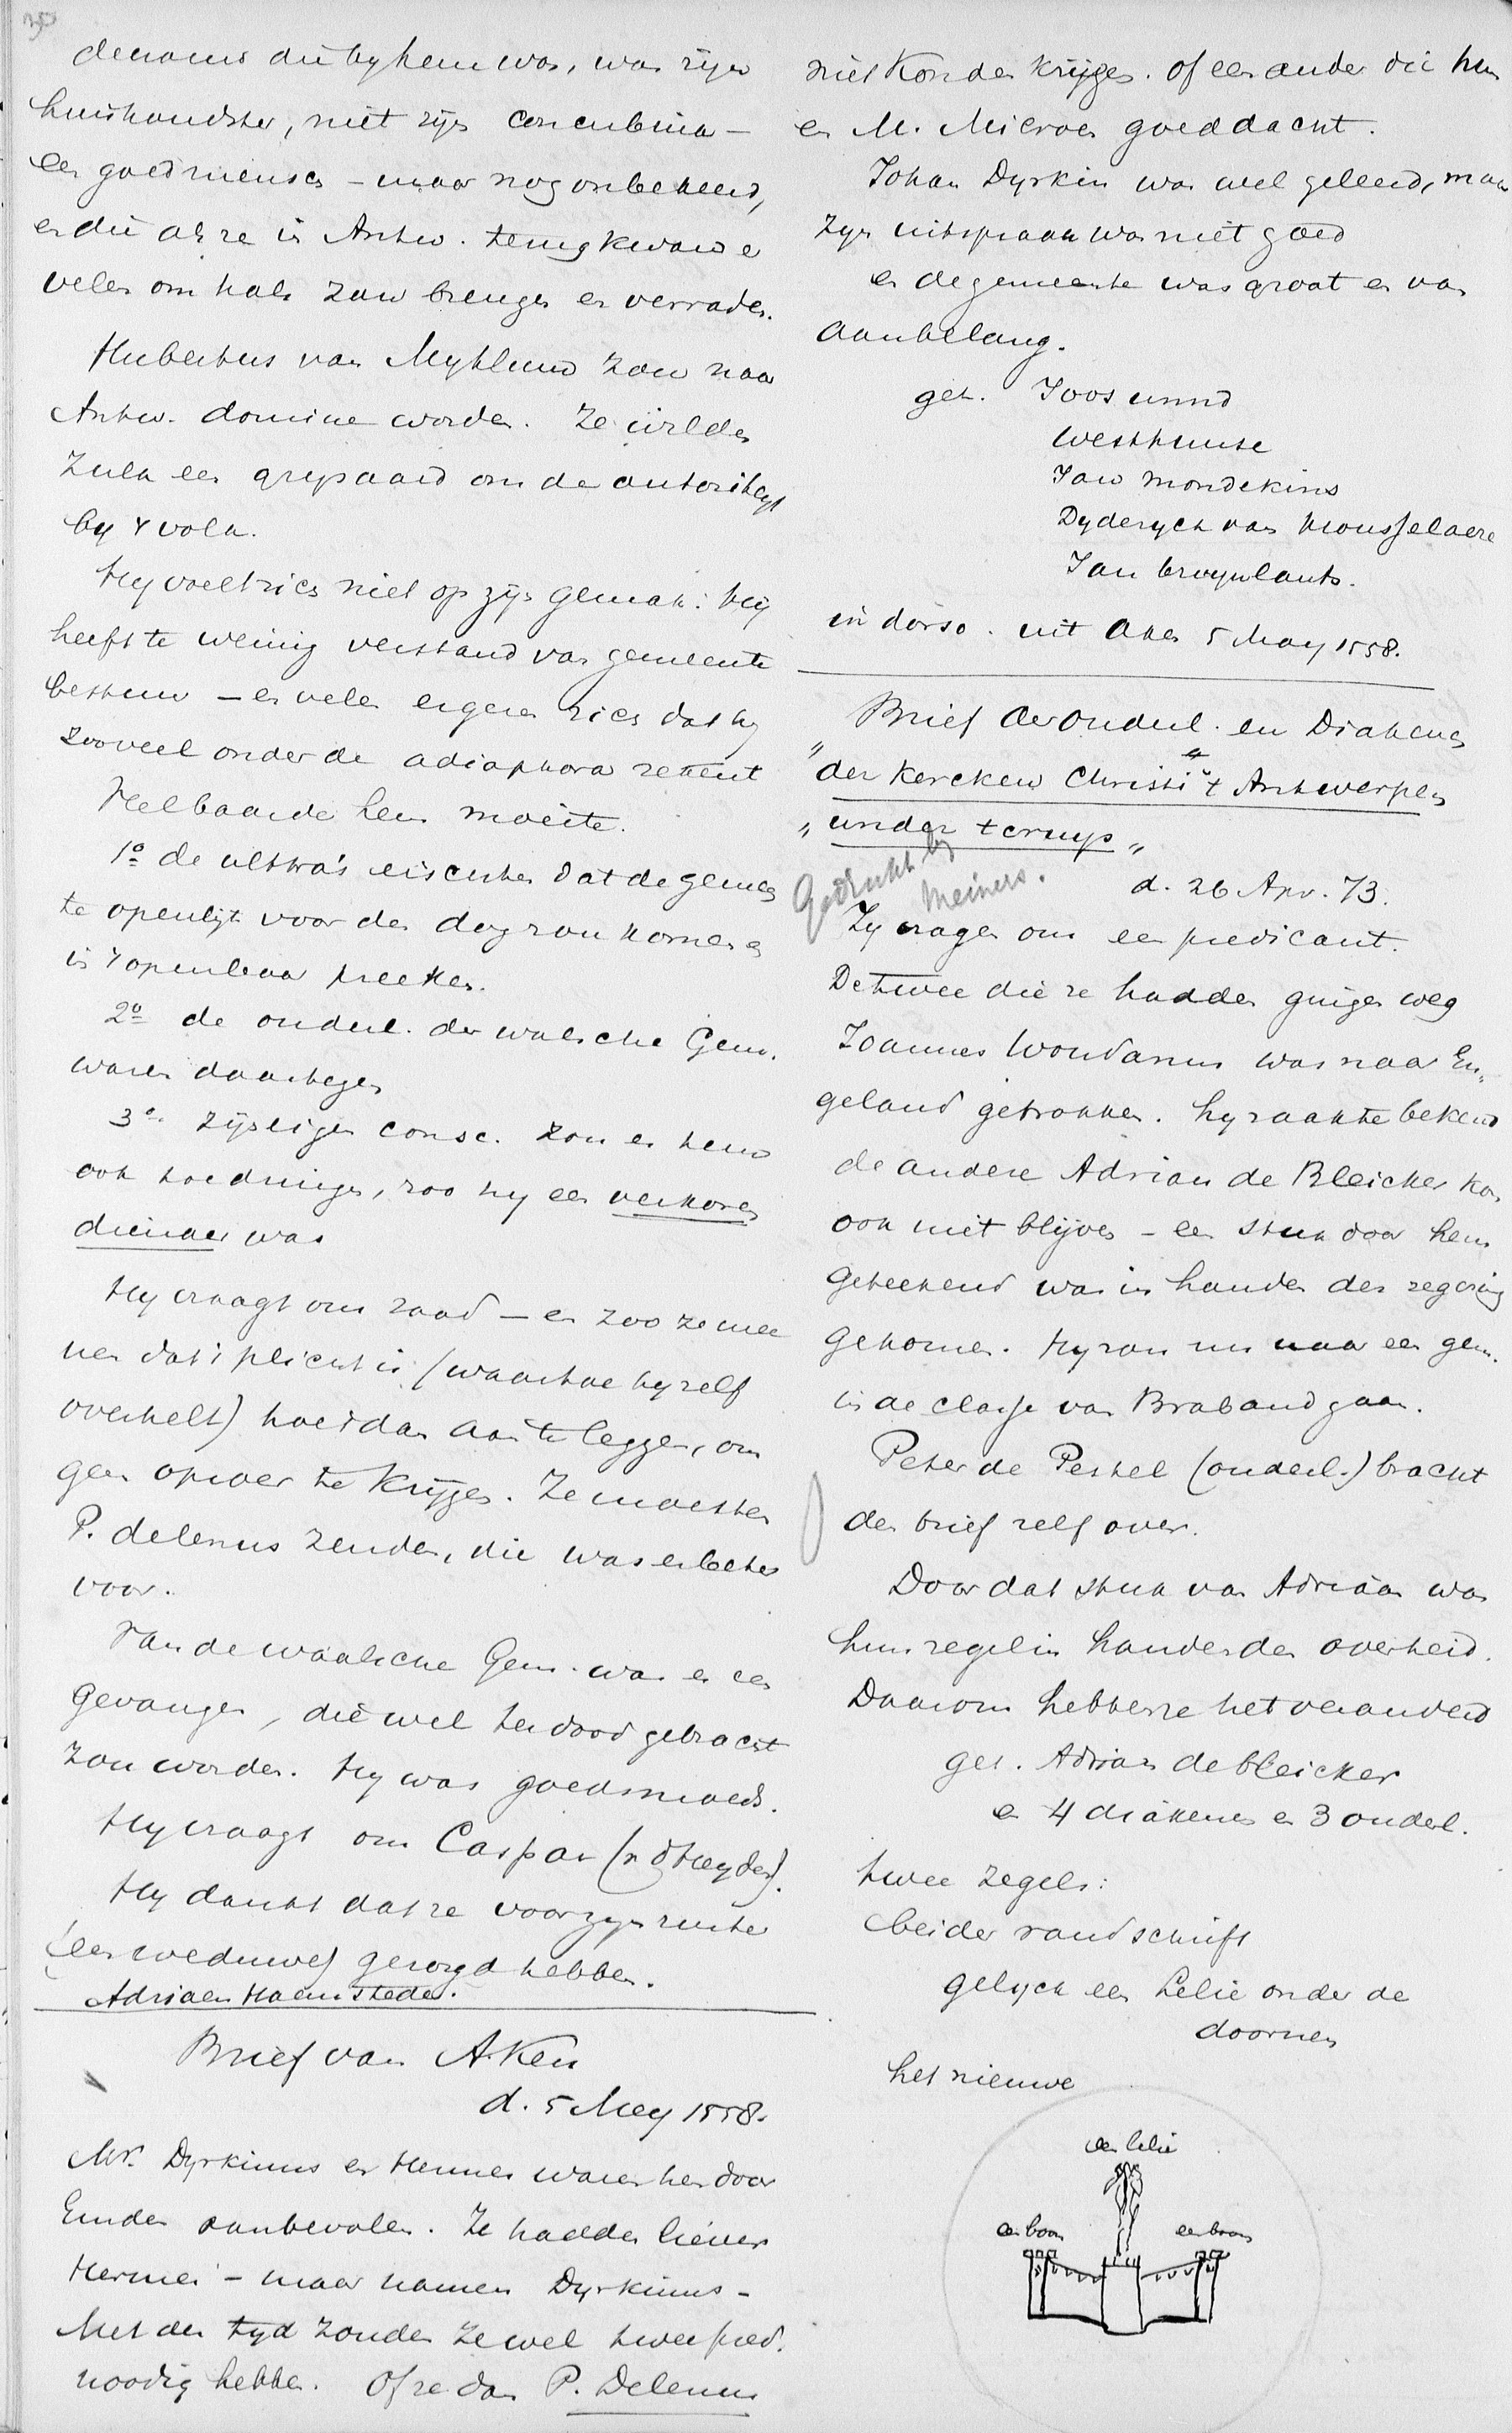 30
de vrouw die by hem was, was zijn
huishoudster, niet zijn concubina —
een goed mensch — maar nog onbekeerd,
en die als ze in Antw. terugkwam er
velen om hals zou brengen en verraden.
Hubertus van Myhlund zou naar
Antw. domine worden. Ze wilden
zulk een grijsaard om de autoriteyt
by t volk.
Hy voelt zich niet op zijn gemak: hij
heeft te weinig verstand van gemeente
bestuur — en velen ergeren zich dat hy
zooveel onder de adiaphora rekent
Het baarde hem moeite.
1o de ultra's eischten dat de gemeen
te openlijk voor den dag zou komen en
in 't openbaar preeken.
2o de ouderl. der walsche Gem.
waren daartegen
3o. zijn eigen consc. zou er hem
ook toe dringen, zoo hy een verkoren
dienaer was
Hy vraagt om raad — en zoo ze mee
nen dat 't plicht is (waartoe hy zelf
overhelt) hoe 't dan aan te leggen, om
geen oproer te krijgen. Ze moesten
P. delenus zenden, die was er beter
voor.
Van de waalsche Gem. was er een
gevangen, die wel ter dood gebracht
zou worden. Hy was goedsmoeds.
Hy vraagt om Caspar (v d Heyden).
Hy dankt dat ze voor zyn zuster
(een weduwe) gezorgd hebben.
Adriaen Haemstede.
Brief van Aken
d. 5 Mey 1558.
Mr. Dyrkinus en Hermes waren hen door
Emden aanbevolen. Ze hadden liever
Hermes — maar namen Dyrkinus —
Met den tyd zouden ze wel twee pred.
noodig hebben. Of ze dan P. Delenus
niet konden krijgen. of een ander die hen
en M. Micron goeddacht.
Johan Dyrkin was wel geleerd, maar
zyn uitspraak was niet goed
en de gemeente was groot en van
aanbelang.
get. Joos
Westhuuse
Jan Mondekins
Dyderych van Mousselaere
Jan bruynlants.
in dorso. uit Aken 5 May 1558.
Brief der Ouderl. en Diakenen
" der Kercken Christi " t Antwerpen
" under t cruys "
Gedrukt by
Meiners.
d. 26 Apr. 73.
Zy vragen om een predicant.
De twee die ze hadden gingen weg
Joannes Woudanus was naar En„
geland getrokken. hy raakte bekend
de andere Adrian de Bleicker kon
ook niet blijven — een stuk door hem
geteekend was in handen der regering
gekomen. Hy zou nu naar een gem.
in de classe van Braband gaan.
Peter de Pestel (ouderl.) bracht
den brief zelf over.
Door dat stuk van Adriaan was
hun zegel in handen der overheid.
Daarom hebben ze het veranderd
get. Adrian de bleicker
en 4 diakenen en 3 ouderl.
twee zegels:
beider randschrift
gelyck een Lelie onder de
doornen
het nieuwe
een lelie
een boom
een boom